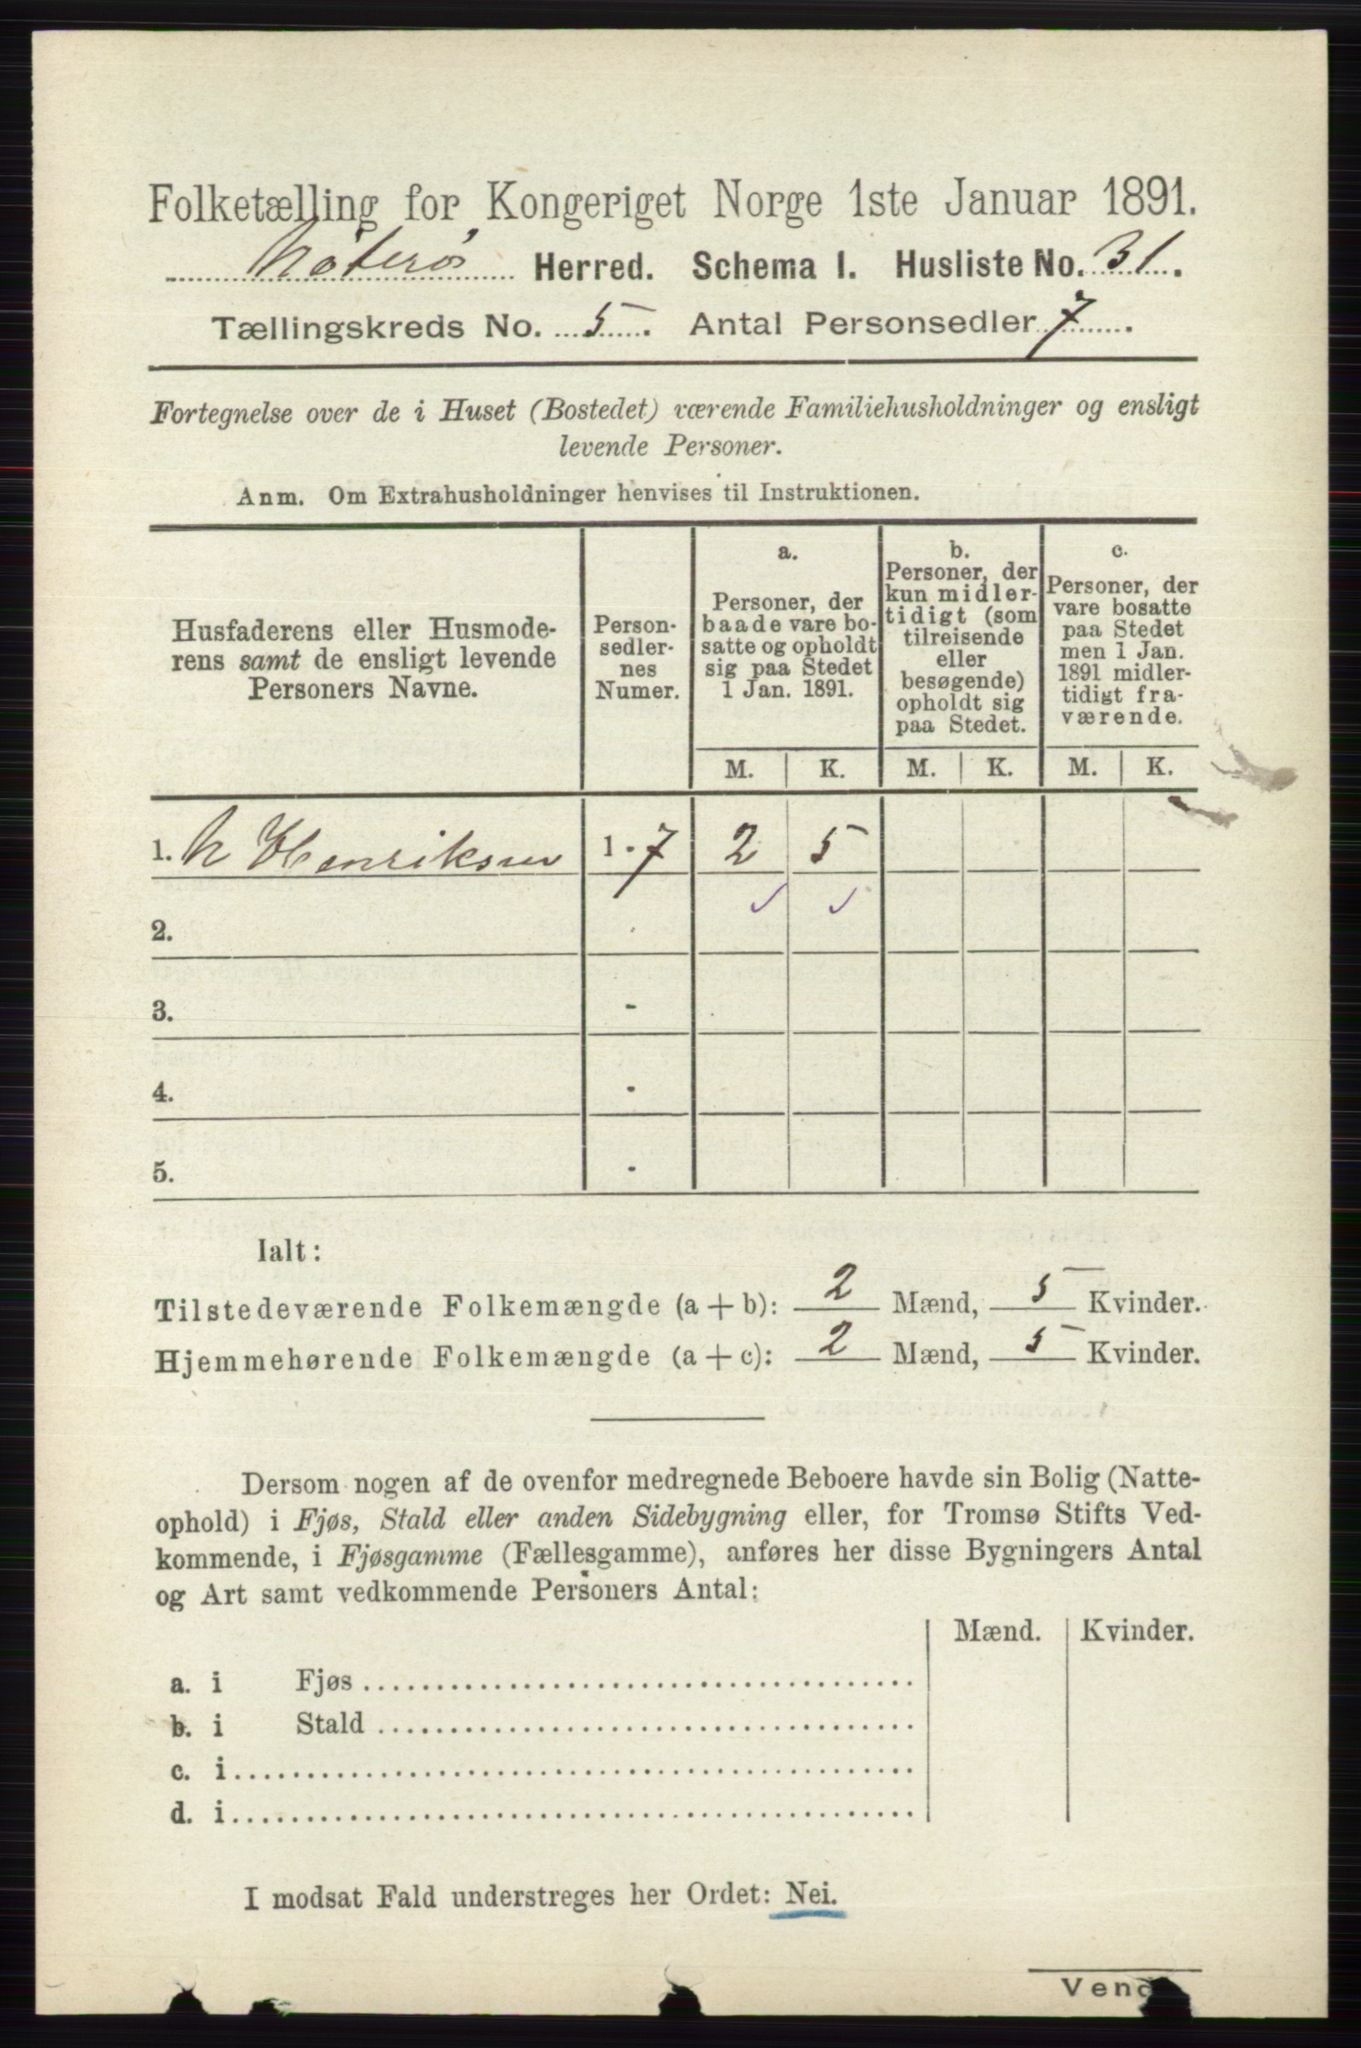 Folketælling for Kongeriget Norge 1ste Januar 1891.
Nøterø Herred. Schema I. Husliste No. 31.
Tællingskreds No. 5. Antal Personsedler 7.
Fortegnelse over de i Huset (Bostedet) værende Familiehusholdninger og ensligt
levende Personer.
Anm. Om Extrahusholdninger henvises til Instruktionen.
Husfaderens eller Husmode-
rens samt de ensligt levende
Personers Navne.
Person-
sedler-
nes
Numer.
a.
Personer, der
baade vare bo-
satte og opholdt
sig paa Stedet
1 Jan. 1891.
b.
Personer, der
kun midler-
tidigt (som
tilreisende
eller
besøgende)
opholdt sig
paa Stedet.
c.
Personer, der
vare bosatte
paa Stedet
men 1 Jan.
1891 midler-
tidigt fra-
værende.
M. K. M. K. M. K.
1. N Henriksen 1-7 2 5
2.
3. -
4. -
5. -
Ialt:
Tilstedeværende Folkemængde (a + b): 2 Mænd, 5 Kvinder.
Hjemmehørende Folkemængde (a + c): 2 Mænd, 5 Kvinder.
Dersom nogen af de ovenfor medregnede Beboere havde sin Bolig (Natte-
ophold) i Fjøs, Stald eller anden Sidebygning eller, for Tromsø Stifts Ved-
kommende, i Fjøsgamme (Fællesgamme), anføres her disse Bygningers Antal
og Art samt vedkommende Personers Antal:
Mænd. Kvinder.
a. i Fjøs
b. i Stald
c. i
d. i
I modsat Fald understreges her Ordet: Nei.